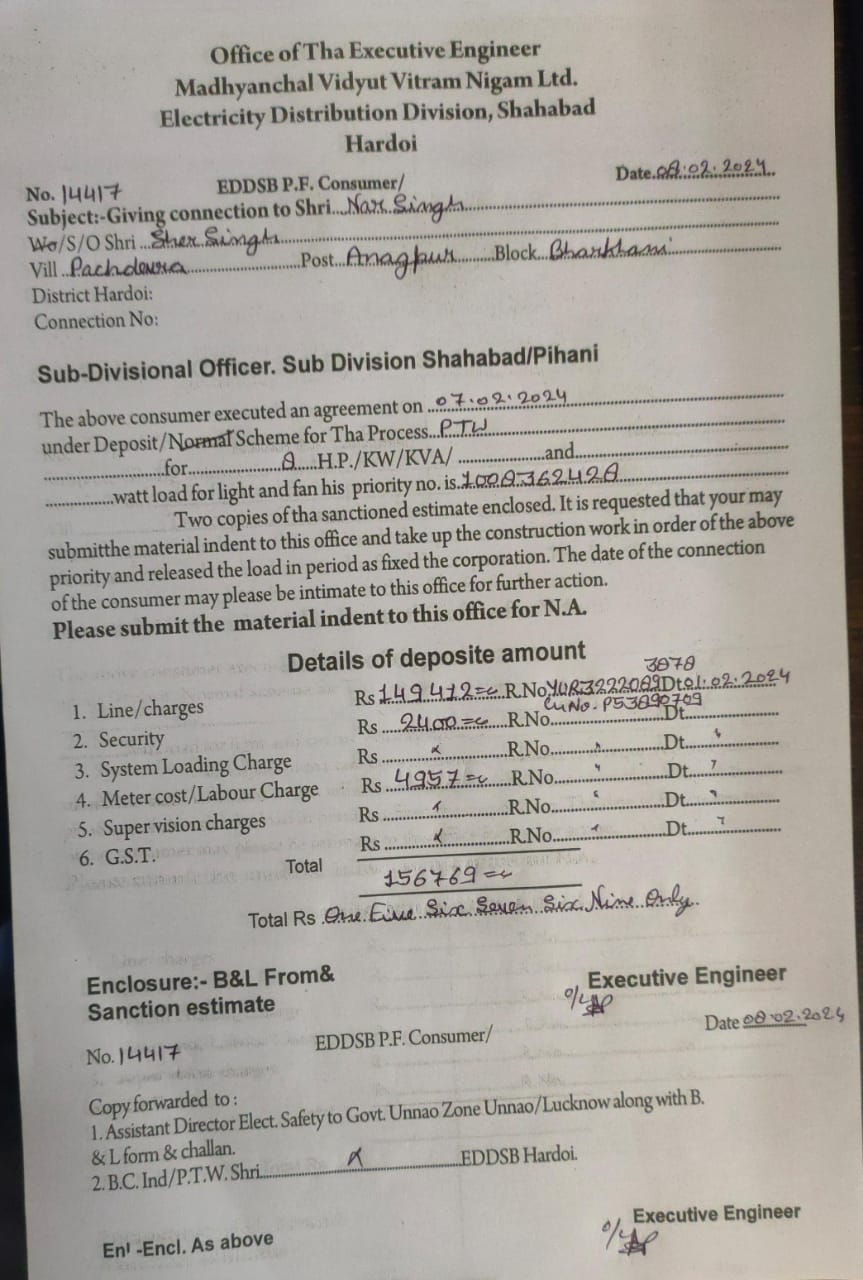 Office of Tha Executive Engineer
Madhyanchal Vidyut Vitram Nigam Ltd.
Electricity Distribution Division, Shahabad
Hardoi
No. 14417 EDDSB P.F. Consumer/ Date.08.02.2024
Subject:-Giving connection to Shri...Nar Singh
Wo/S/O Shri...Sher Singh
Vill..Pachdevra...Post...Anagpur...Block...Bharkhani
District Hardoi:
Connection No:
Sub-Divisional Officer. Sub Division Shahabad/Pihani
The above consumer executed an agreement on 07.02.2024
under Deposit/Normal Scheme for Tha Process...PTW
for...8...H.P./KW/KVA/...and
watt load for light and fan his priority no. is.1008362428
Two copies of tha sanctioned estimate enclosed. It is requested that your may
submitthe material indent to this office and take up the construction work in order of the above
priority and released the load in period as fixed the corporation. The date of the connection
of the consumer may please be intimate to this office for further action.
Please submit the material indent to this office for N.A.
Details of deposite amount
3878
1. Line/charges Rs 149412= R.No Dt 01.02.2024
2. Security Rs 2400= R.No. Dt.
3. System Loading Charge Rs x R.No. Dt.
4. Meter cost/Labour Charge Rs 4957= R.No. Dt.
5. Super vision charges Rs R.No. Dt.
6. G.S.T. Rs x R.No. Dt.
Total 156769=
Total Rs One Five Six Seven Six Nine Only.
Enclosure:- B&L From& Executive Engineer
Sanction estimate
No. 14417 EDDSB P.F. Consumer/ Date 08.02.2024
Copy forwarded to :
1. Assistant Director Elect. Safety to Govt. Unnao Zone Unnao/Lucknow along with B.
& L form & challan.
2. B.C. Ind/P.T.W. Shri...x...EDDSB Hardoi.
Executive Engineer
Enl -Encl. As above